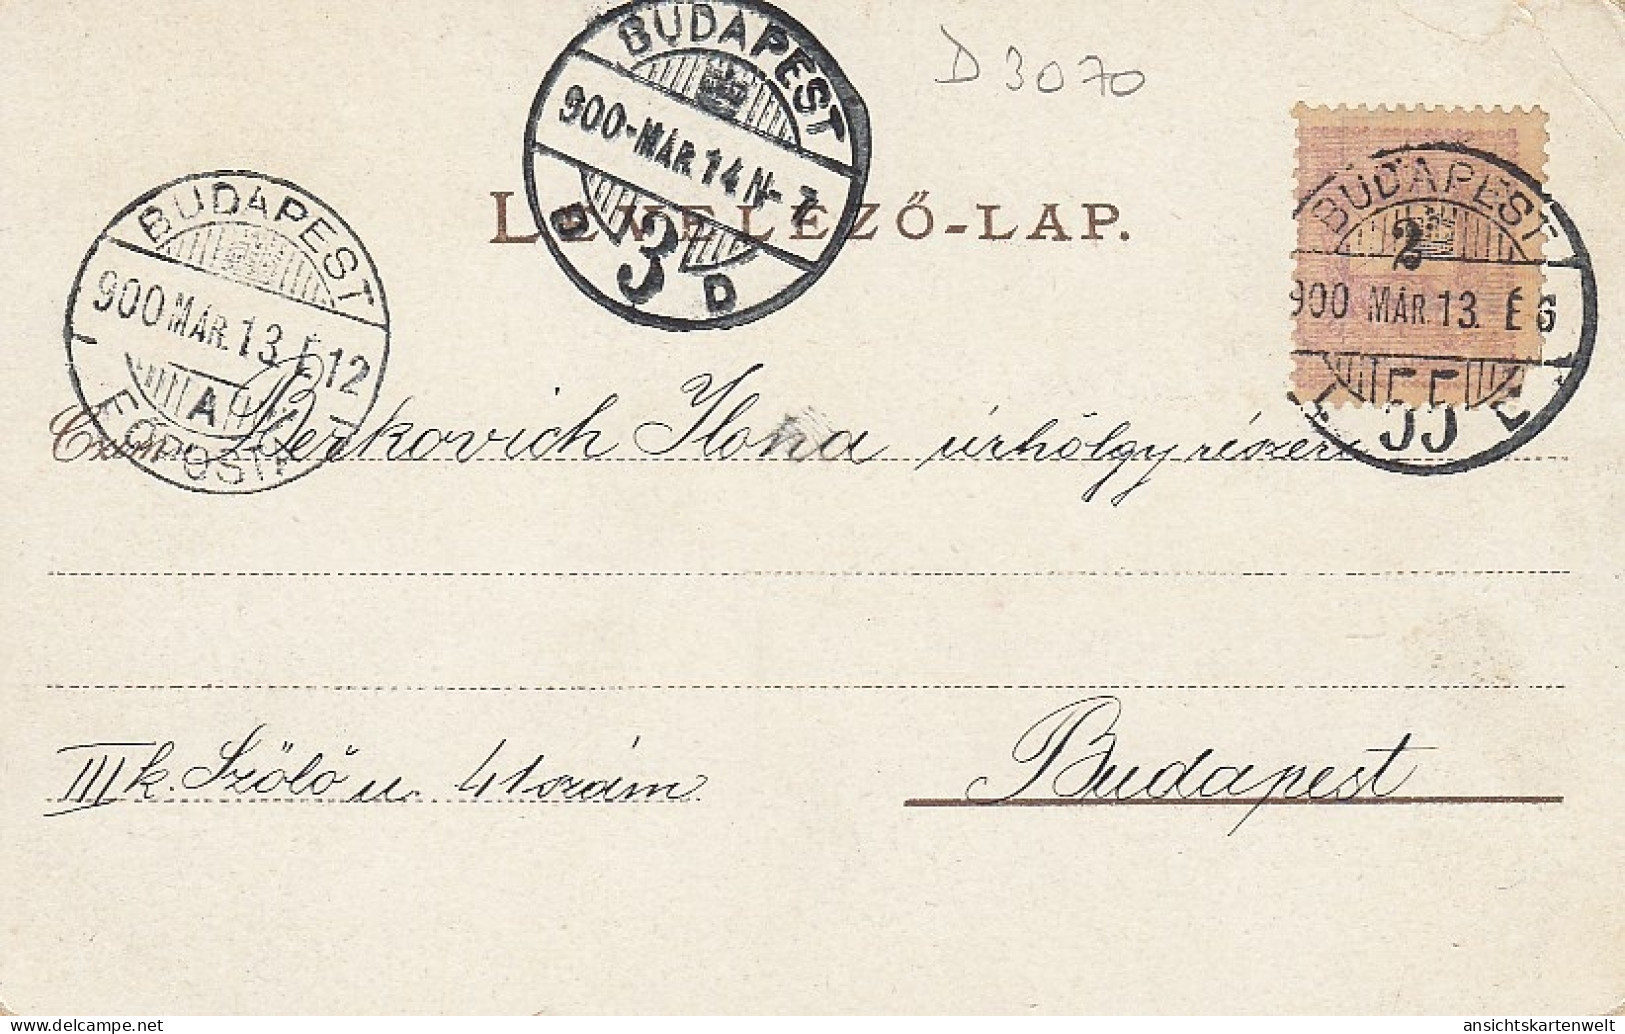 BUDAPEST
900-MÁR.14 N-7
3 D
D 3070
BUDAPEST
900 MÁR.13 É12
A
FŐPOSTA
LEVELEZŐ-LAP.
BUDAPEST
2
900 MÁR.13. É6
55
Berkovich Ilona úrhölgy részére
III k. Szőlő u. 41 szám
Budapest
delcampe.net
ansichtskartenwelt